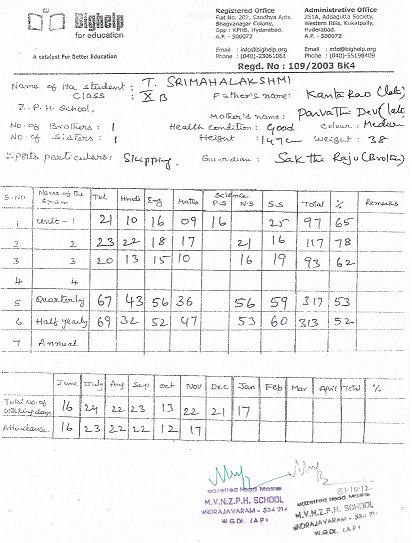 Bighelp
for education
A catalyst For Better Education
Registered Office
Flat No. 202, Sandhya Apts.
Bhagyanagar Colony,
Opp : KPHB, Hyderabad.
A.P - 500072
Email : info@bighelp.org
Phone : (040)-23061061
Administrative Office
251A, Addagutta Society,
Western Hills, Kukatpally,
Hyderabad.
A.P - 500072
Email : info@bighelp.org
Phone : (040)-55198409
Regd. No : 109/2003 BK4
Name of the student : T. SRIMAHALAKSHMI
Class : X B Father's name: Kanta Rao (late)
Z.P.H School, Mother's name: Parvathi Devi (late)
No. of Brothers : 1 Health Condition : Good Colour : Medium
No. of Sisters : 1 Height : 147cm Weight : 38
Sports particulars: Skipping. Guardian : Sakthi Raju (Brother)
S.NO Name of the Exam Tel Hindi Eng Maths Science P.S N.S S.S Total % Remarks
1 Unit - 1 21 10 16 09 16 25 97 65
2 2 23 22 18 17 21 16 117 78
3 3 20 13 15 10 16 19 93 62
4 4
5 Quarterly 67 43 56 36 56 59 317 53
6 Half yearly 69 32 52 47 53 60 313 52
7 Annual
June July Aug Sep Oct Nov Dec Jan Feb Mar April Total %
Total No. of Working days 16 24 22 23 13 22 21 17
Attendance 16 23 22 22 12 17
Gazetted Head Master
M.V.N.Z.P.H. SCHOOL
INDRAJAVARAM - 534
W.G.Dt. (AP)
31-10-12
Gazetted Head Master
M.V.N.Z.P.H. SCHOOL
INDRAJAVARAM - 534
W.G.Dt. (AP)